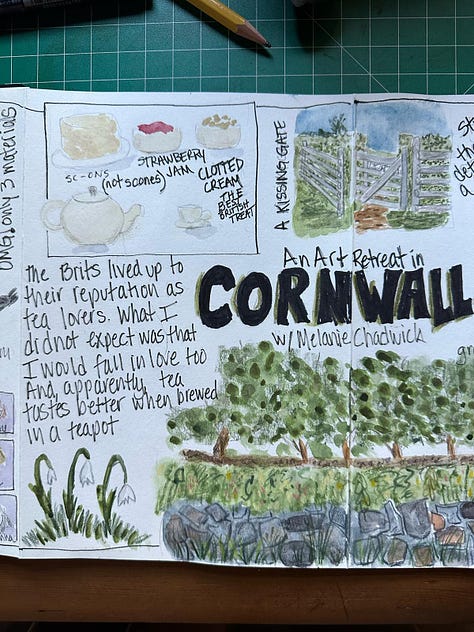 OMG, only 3 materials
SC-ONS
(not scones)
STRAWBERRY
JAM
CLOTTED
CREAM
THE
BEST
BRITISH
TREAT
A KISSING GATE
the Brits lived up to
their reputation as
tea lovers. What I
did not expect was that
I would fall in love too
And, apparently, tea
tastes better when brewed
in a teapot
An Art Retreat in
CORNWALL
w/ Melanie Chadwick